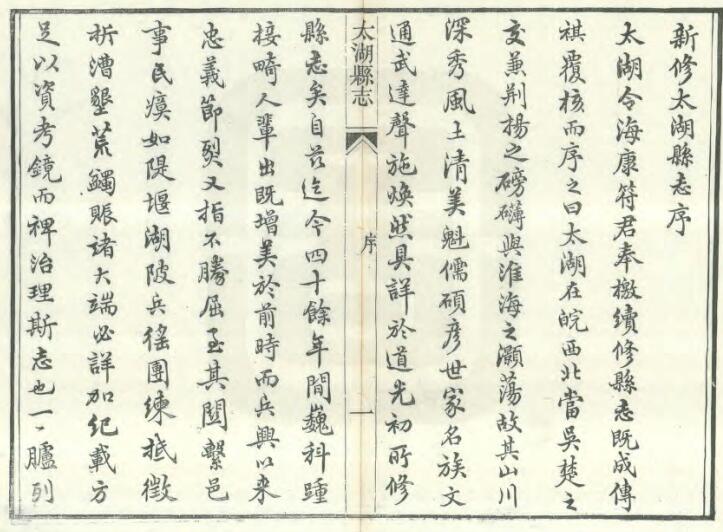 新修太湖縣志序
太湖令海康符君奉檄續修縣志既成傳
祺覆核而序之曰太湖在皖西北當吳楚之
交兼荆揚之磅礴與淮海之灝蕩故其山川
深秀風土清美魁儒碩彦世家名族文
通武達聲施煥然具詳於道光初所修
太湖縣志
序
一
縣志矣自茲迄今四十餘年間巍科踵
接畸人輩出既增美於前時而兵興以来
忠義節烈又指不勝屈至其關繫邑
事民瘼如隄堰湖陂兵徭團練抵徵
折漕墾荒蠲賑諸大端必詳加紀載方
足以資考鏡而裨治理斯志也一一臚列